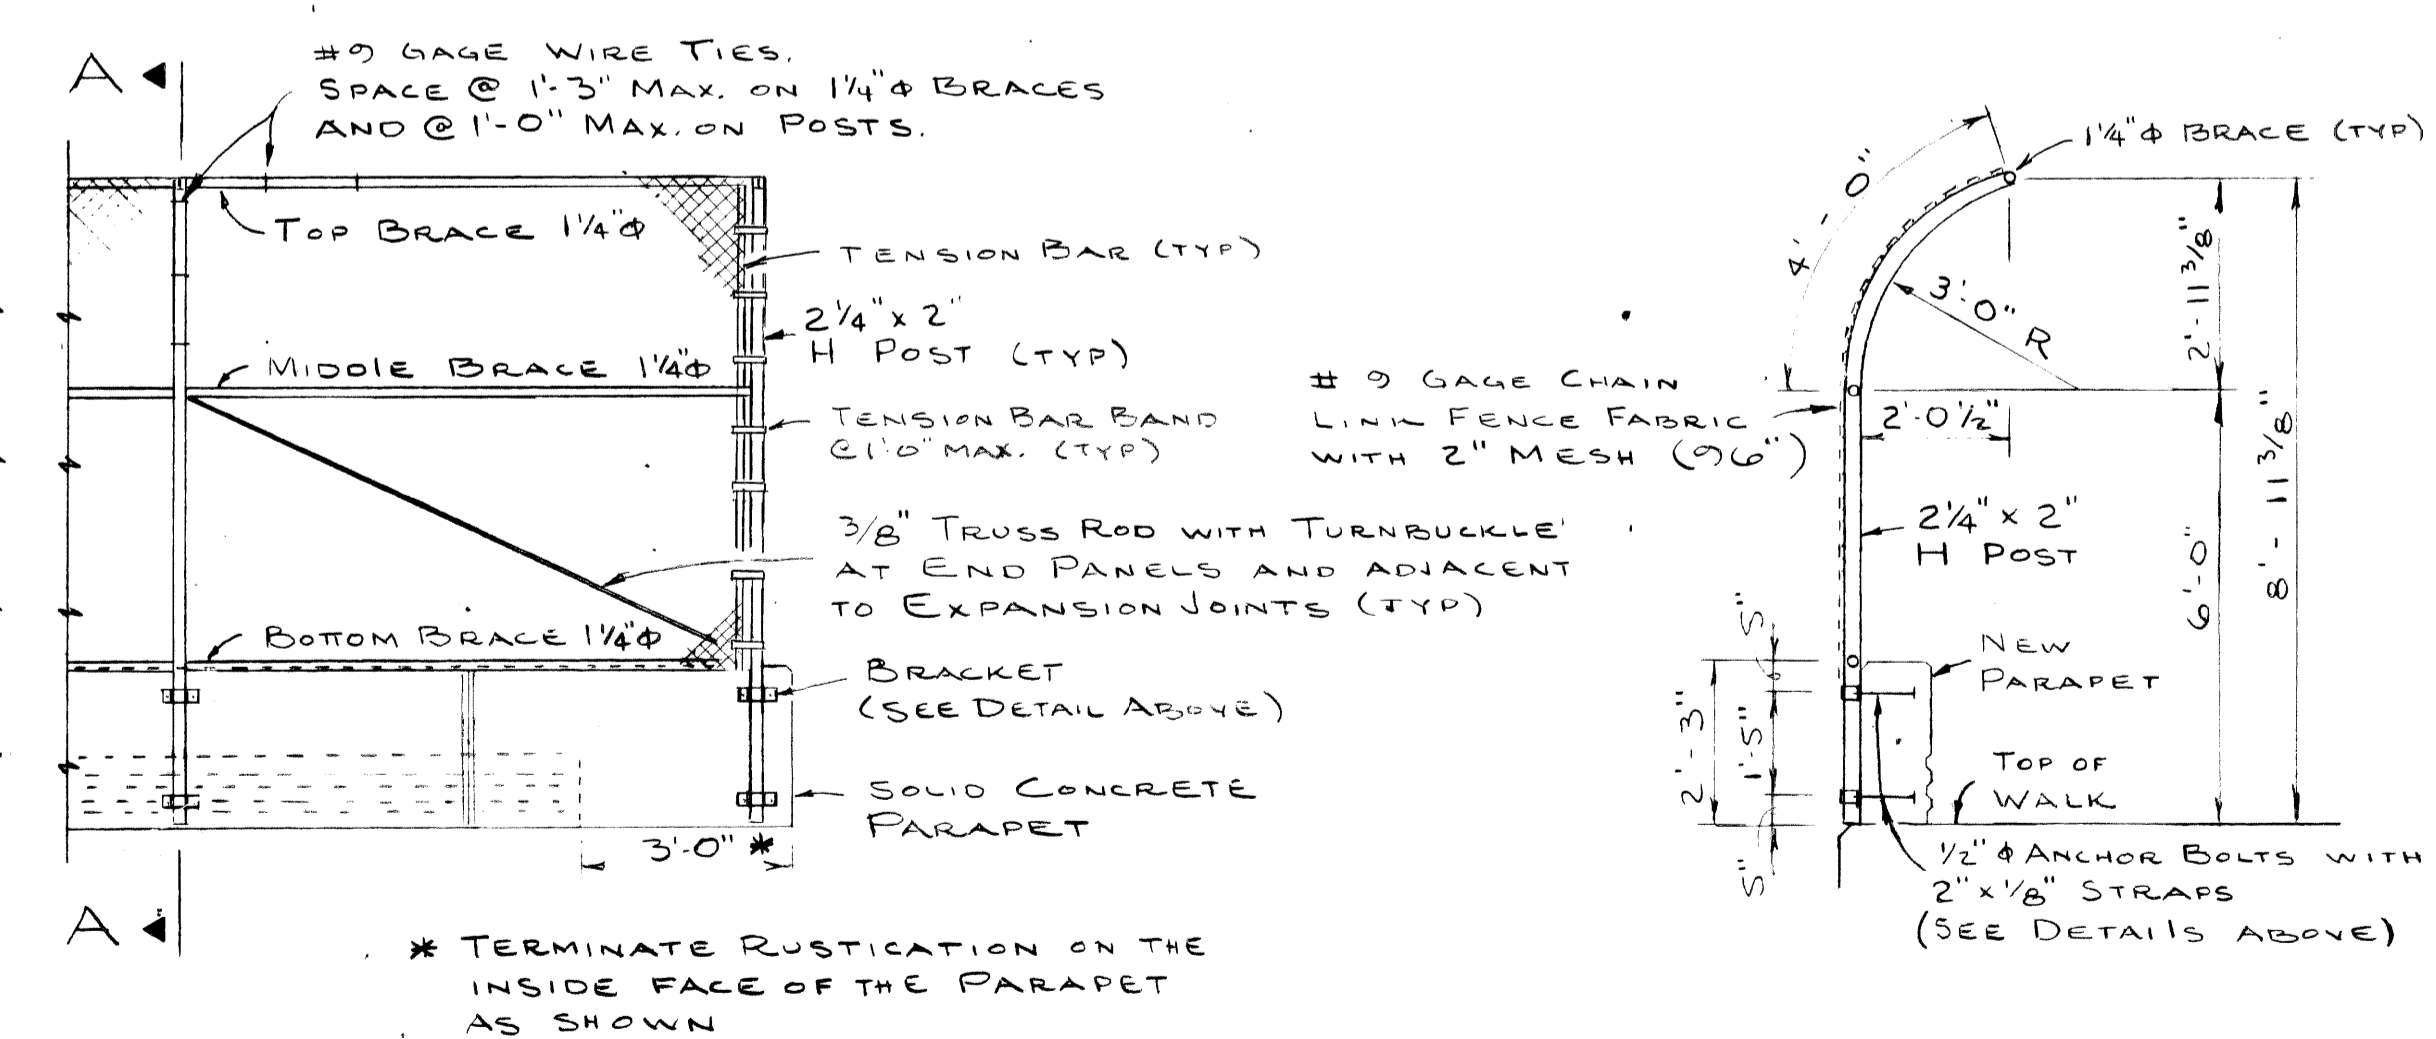 A
#9 GAGE WIRE TIES.
SPACE @ 1'-3" MAX. ON 1¼"Φ BRACES
AND @ 1'-0" MAX. ON POSTS.
TOP BRACE 1¼"Φ
TENSION BAR (TYP)
2¼" x 2"
H POST (TYP)
MIDDLE BRACE 1¼"Φ
TENSION BAR BAND
@ 1'-0" MAX. (TYP)
3/8" TRUSS ROD WITH TURNBUCKLE
AT END PANELS AND ADJACENT
TO EXPANSION JOINTS (TYP)
BOTTOM BRACE 1¼"Φ
BRACKET
(SEE DETAIL ABOVE)
SOLID CONCRETE
PARAPET
3'-0" *
A
* TERMINATE RUSTICATION ON THE
INSIDE FACE OF THE PARAPET
AS SHOWN
1¼"Φ BRACE (TYP)
4'-0"
3'-0" R
2'-11 3/8"
# 9 GAGE CHAIN
LINK FENCE FABRIC
WITH 2" MESH (96")
2'-0½"
8'-11 3/8"
2¼" x 2"
H POST
6'-0"
5"
NEW
PARAPET
2'-3"
1'-5"
TOP OF
WALK
5"
½"Φ ANCHOR BOLTS WITH
2" x 1/8" STRAPS
(SEE DETAILS ABOVE)